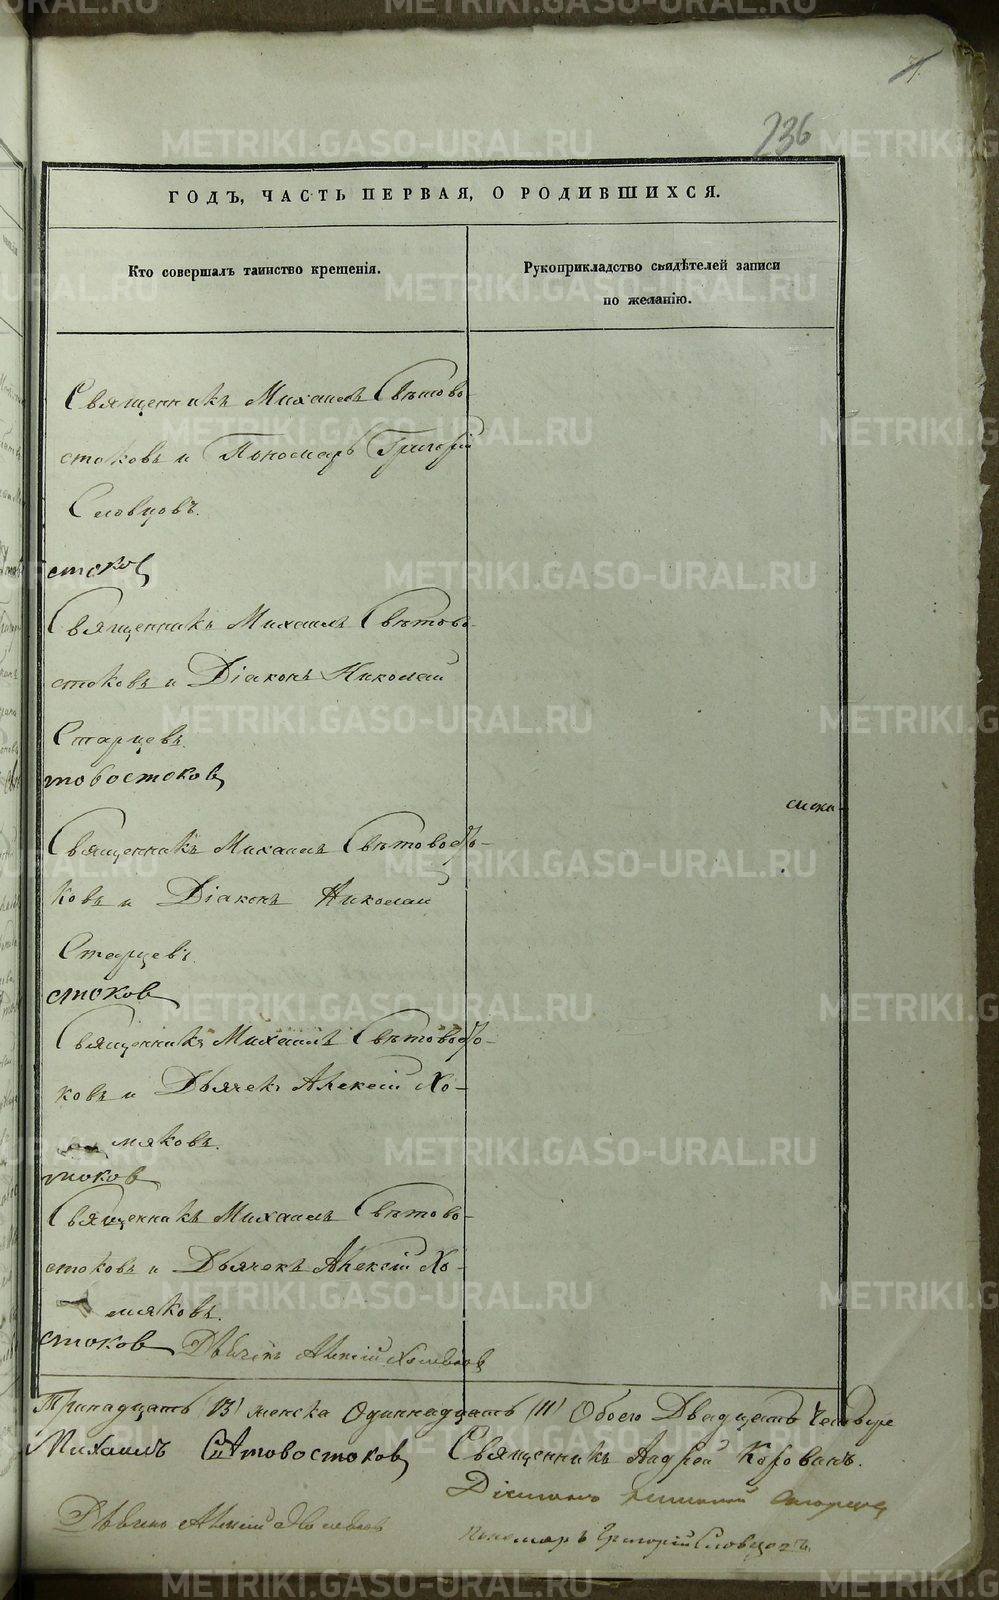 71
236
ГОДЪ, ЧАСТЬ ПЕРВАЯ, О РОДИВШИХСЯ.
Кто совершалъ таинство крещенія.
Рукоприкладство свидѣтелей записи
по желанію.
Священникъ Михаилъ Свѣтово-
стоковъ и Пономарь Григорій
Словцовъ.
стоковъ
Священникъ Михаилъ Свѣтово-
стоковъ и Діаконъ Николай
Старцевъ.
товостоковъ
Священникъ Михаилъ Свѣтовосто-
ковъ и Діаконъ Николай
Старцевъ.
стоковъ
Священникъ Михаилъ Свѣтовосто-
ковъ и Дьячекъ Алексій Хо-
мяковъ.
токовъ
Священникъ Михаилъ Свѣтово-
стоковъ и Дьячекъ Алексій Хо-
мяковъ.
стоковъ Дьячекъ Алексій Хомяковъ
Тринадцать /13/ женска Одиннадцать /11/ Обоего Двадцать Четыре
Михаилъ Свѣтовостоковъ Священникъ Андрей Корованъ.
Діаконъ Николай Старцевъ
Дьячекъ Алексій Хомяковъ
пономарь Григорій Словцовъ
METRIKI.GASO-URAL.RU